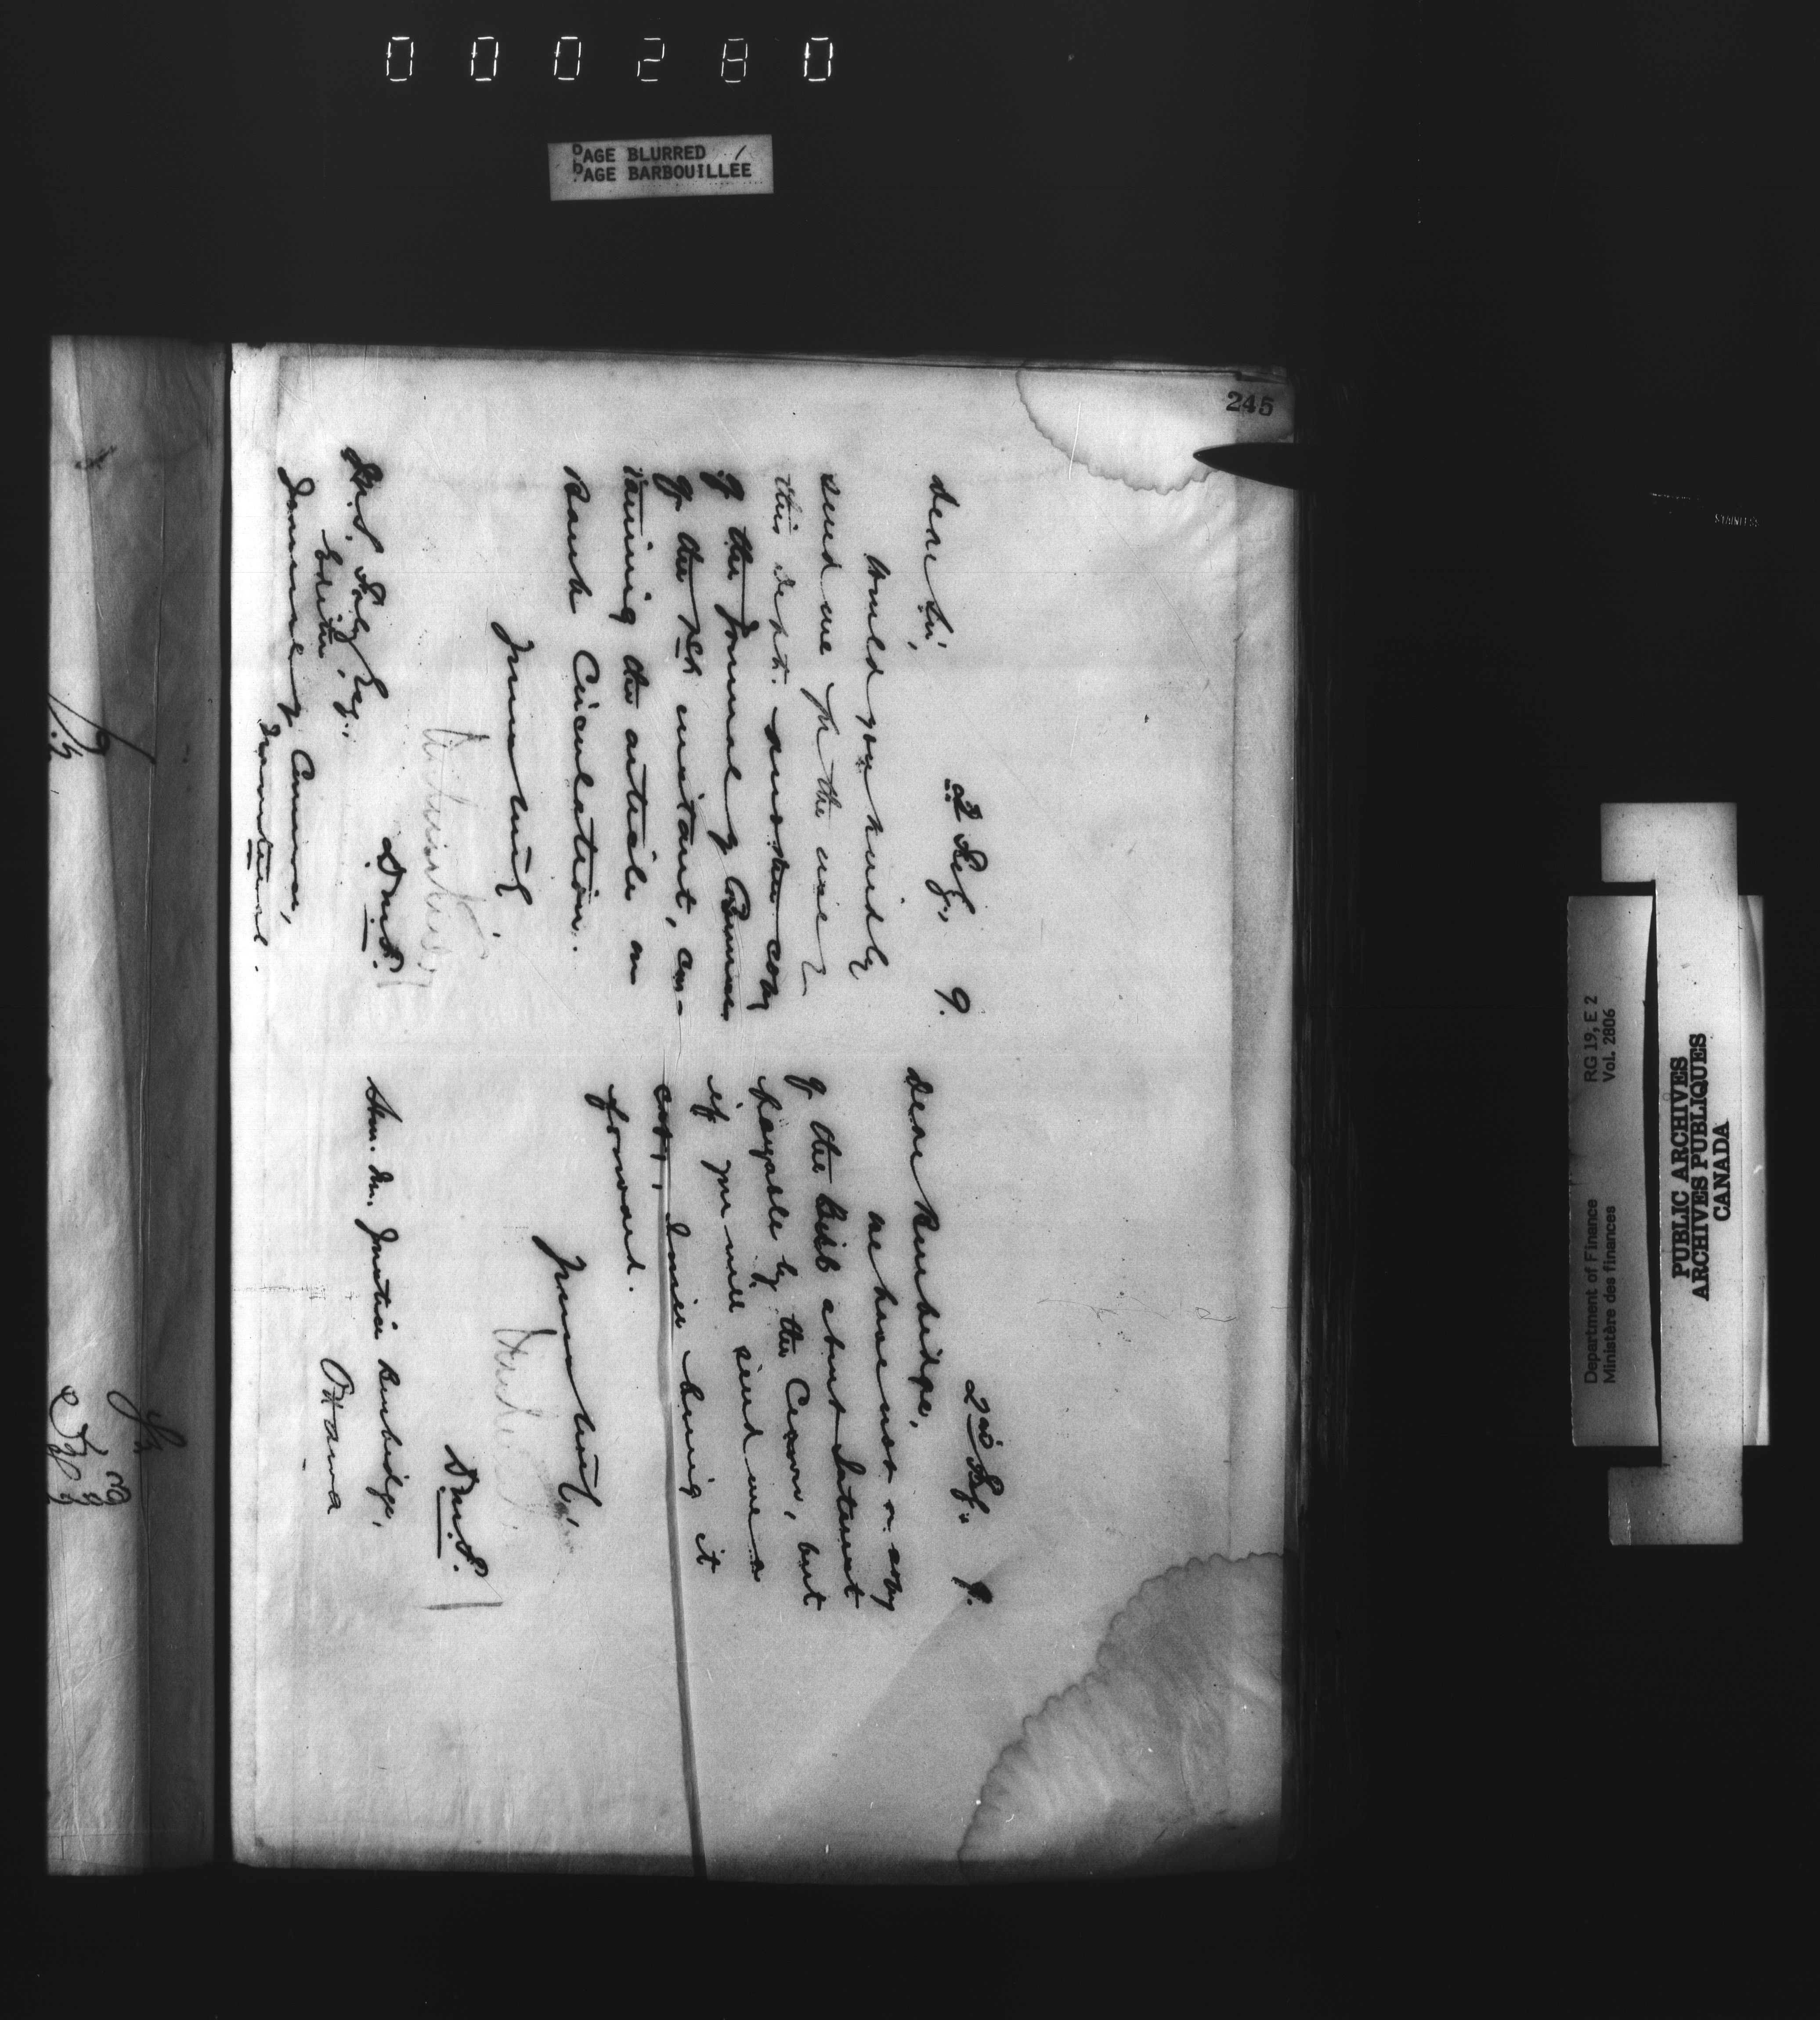 000280
PAGE BLURRED
PAGE BARBOUILLÉE
245
2 Sep., 9.
Dear Sir,
Would you kindly
send me for the use of
this Dept. another copy
of the Journal of Commerce
of the instant, con-
taining the article on
Bank Circulation.
Yours truly
D.M.F.
M.S. Foley Esq.,
Editor
Journal of Commerce,
Montreal.
2nd Sep. 9.
Dear Burbidge,
We have not a copy
of the Bill about Interest
payable by the Crown, but
if you will send me a
copy, I will bring it
forward.
Yours truly,
D.M.F.
Hon. Mr. Justice Burbidge,
Ottawa
Department of Finance RG 19, E 2
Ministère des finances Vol. 2806
PUBLIC ARCHIVES
ARCHIVES PUBLIQUES
CANADA
STAINLESS